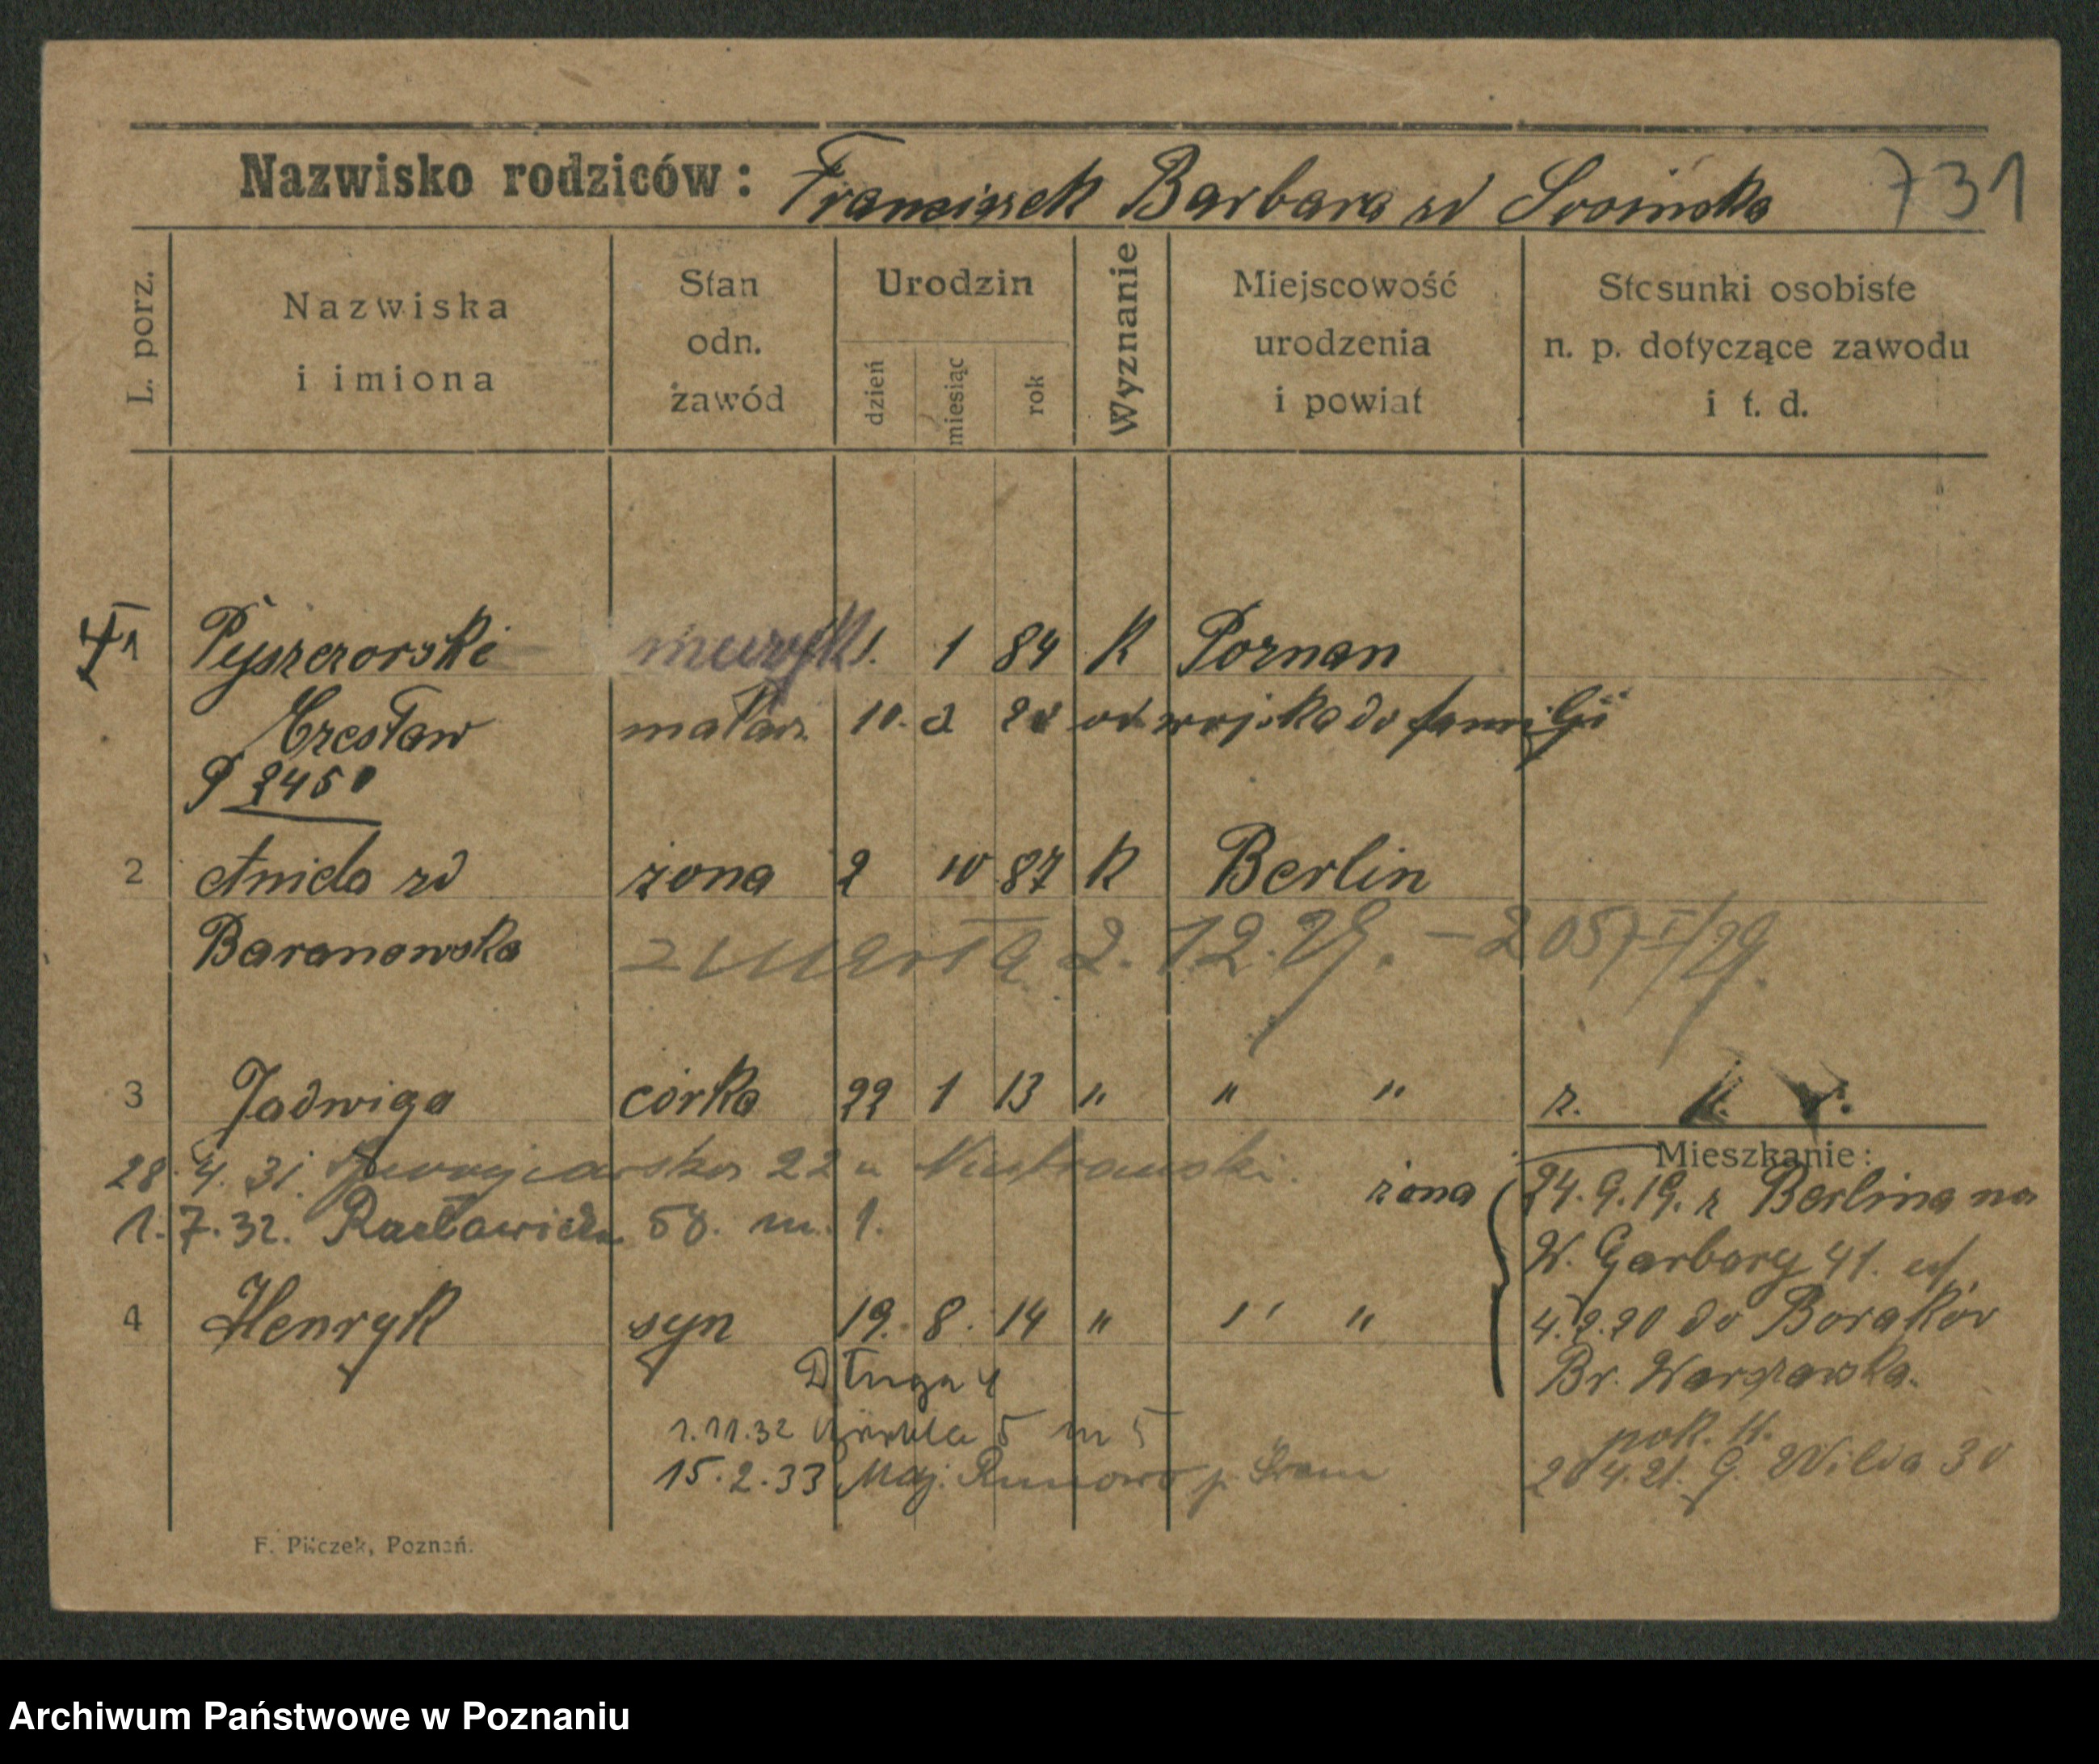 Nazwisko rodziców: Franciszek Barbara zd Sroińska 731
L. porz.
Nazwiska i imiona
Stan odn. zawód
Urodzin
dzień
miesiąc
rok
Wyznanie
Miejscowość urodzenia i powiat
Stosunki osobiste n. p. dotyczące zawodu i t. d.
1 Pyszczorski muzyk 1. 1 84 K Poznan
Czesław malarz 10. 2 20 od wojska do familji
P 2450
2 Aniela zd żona 2 10 87 K Berlin
Baranowska zmarła 2.12.29. – 2057 I/29.
3 Jadwiga córka 22 1 13 " " " z.
Mieszkanie:
28.4.31. 22 u
żona 24.9.19. z Berlina na
1.7.32. Racławicka 58. m. 1.
W. Garbary 41.
4 Henryk syn 19. 8. 14 " " "
4.2.20 do Boraków
Długa 4
Br. Warszawska.
1.11.32 5 m 5
pok. 11.
15.2.33 Maj. Runowo p. Śrem
20 4.21. G. Wilda 30
F. Pilczek, Poznań.
Archiwum Państwowe w Poznaniu